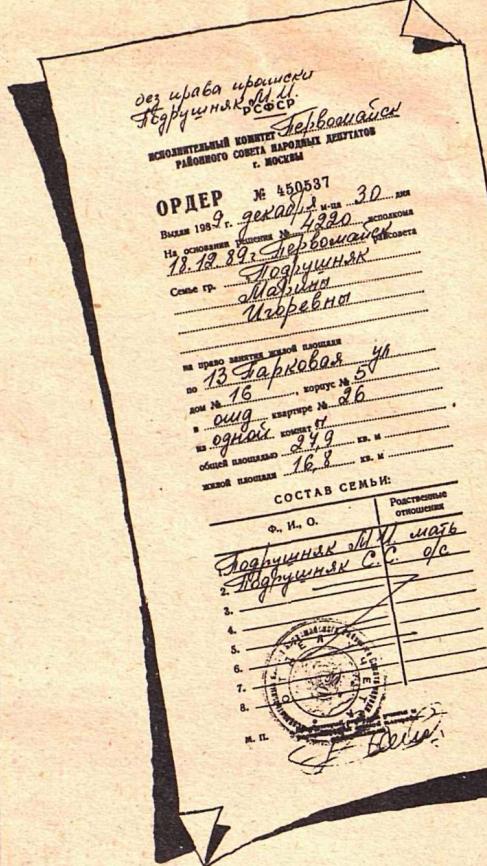 без права прописки
Подрушняк М.И.
РСФСР
ИСПОЛНИТЕЛЬНЫЙ КОМИТЕТ Первомайск
РАЙОННОГО СОВЕТА НАРОДНЫХ ДЕПУТАТОВ
г. МОСКВЫ
ОРДЕР № 450537
Выдан 1989 г. декабря м-ца 30 дня
На основании решения № 4220 исполкома
18.12.89г. Первомайск райсовета
Семье гр. Подрушняк
Марины
Игоревны
на право занятия жилой площади
по 13 Парковая ул
дом № 16, корпус № 5
в отд квартире № 26
из одной комнат
общей площадью 27,9 кв. м
жилой площади 16,8 кв. м
СОСТАВ СЕМЬИ:
Ф., И., О. Родственные отношения
1. Подрушняк М.И. мать
2. Подрушняк С.С. о/с
3.
4.
5.
6.
7.
8.
М. П.